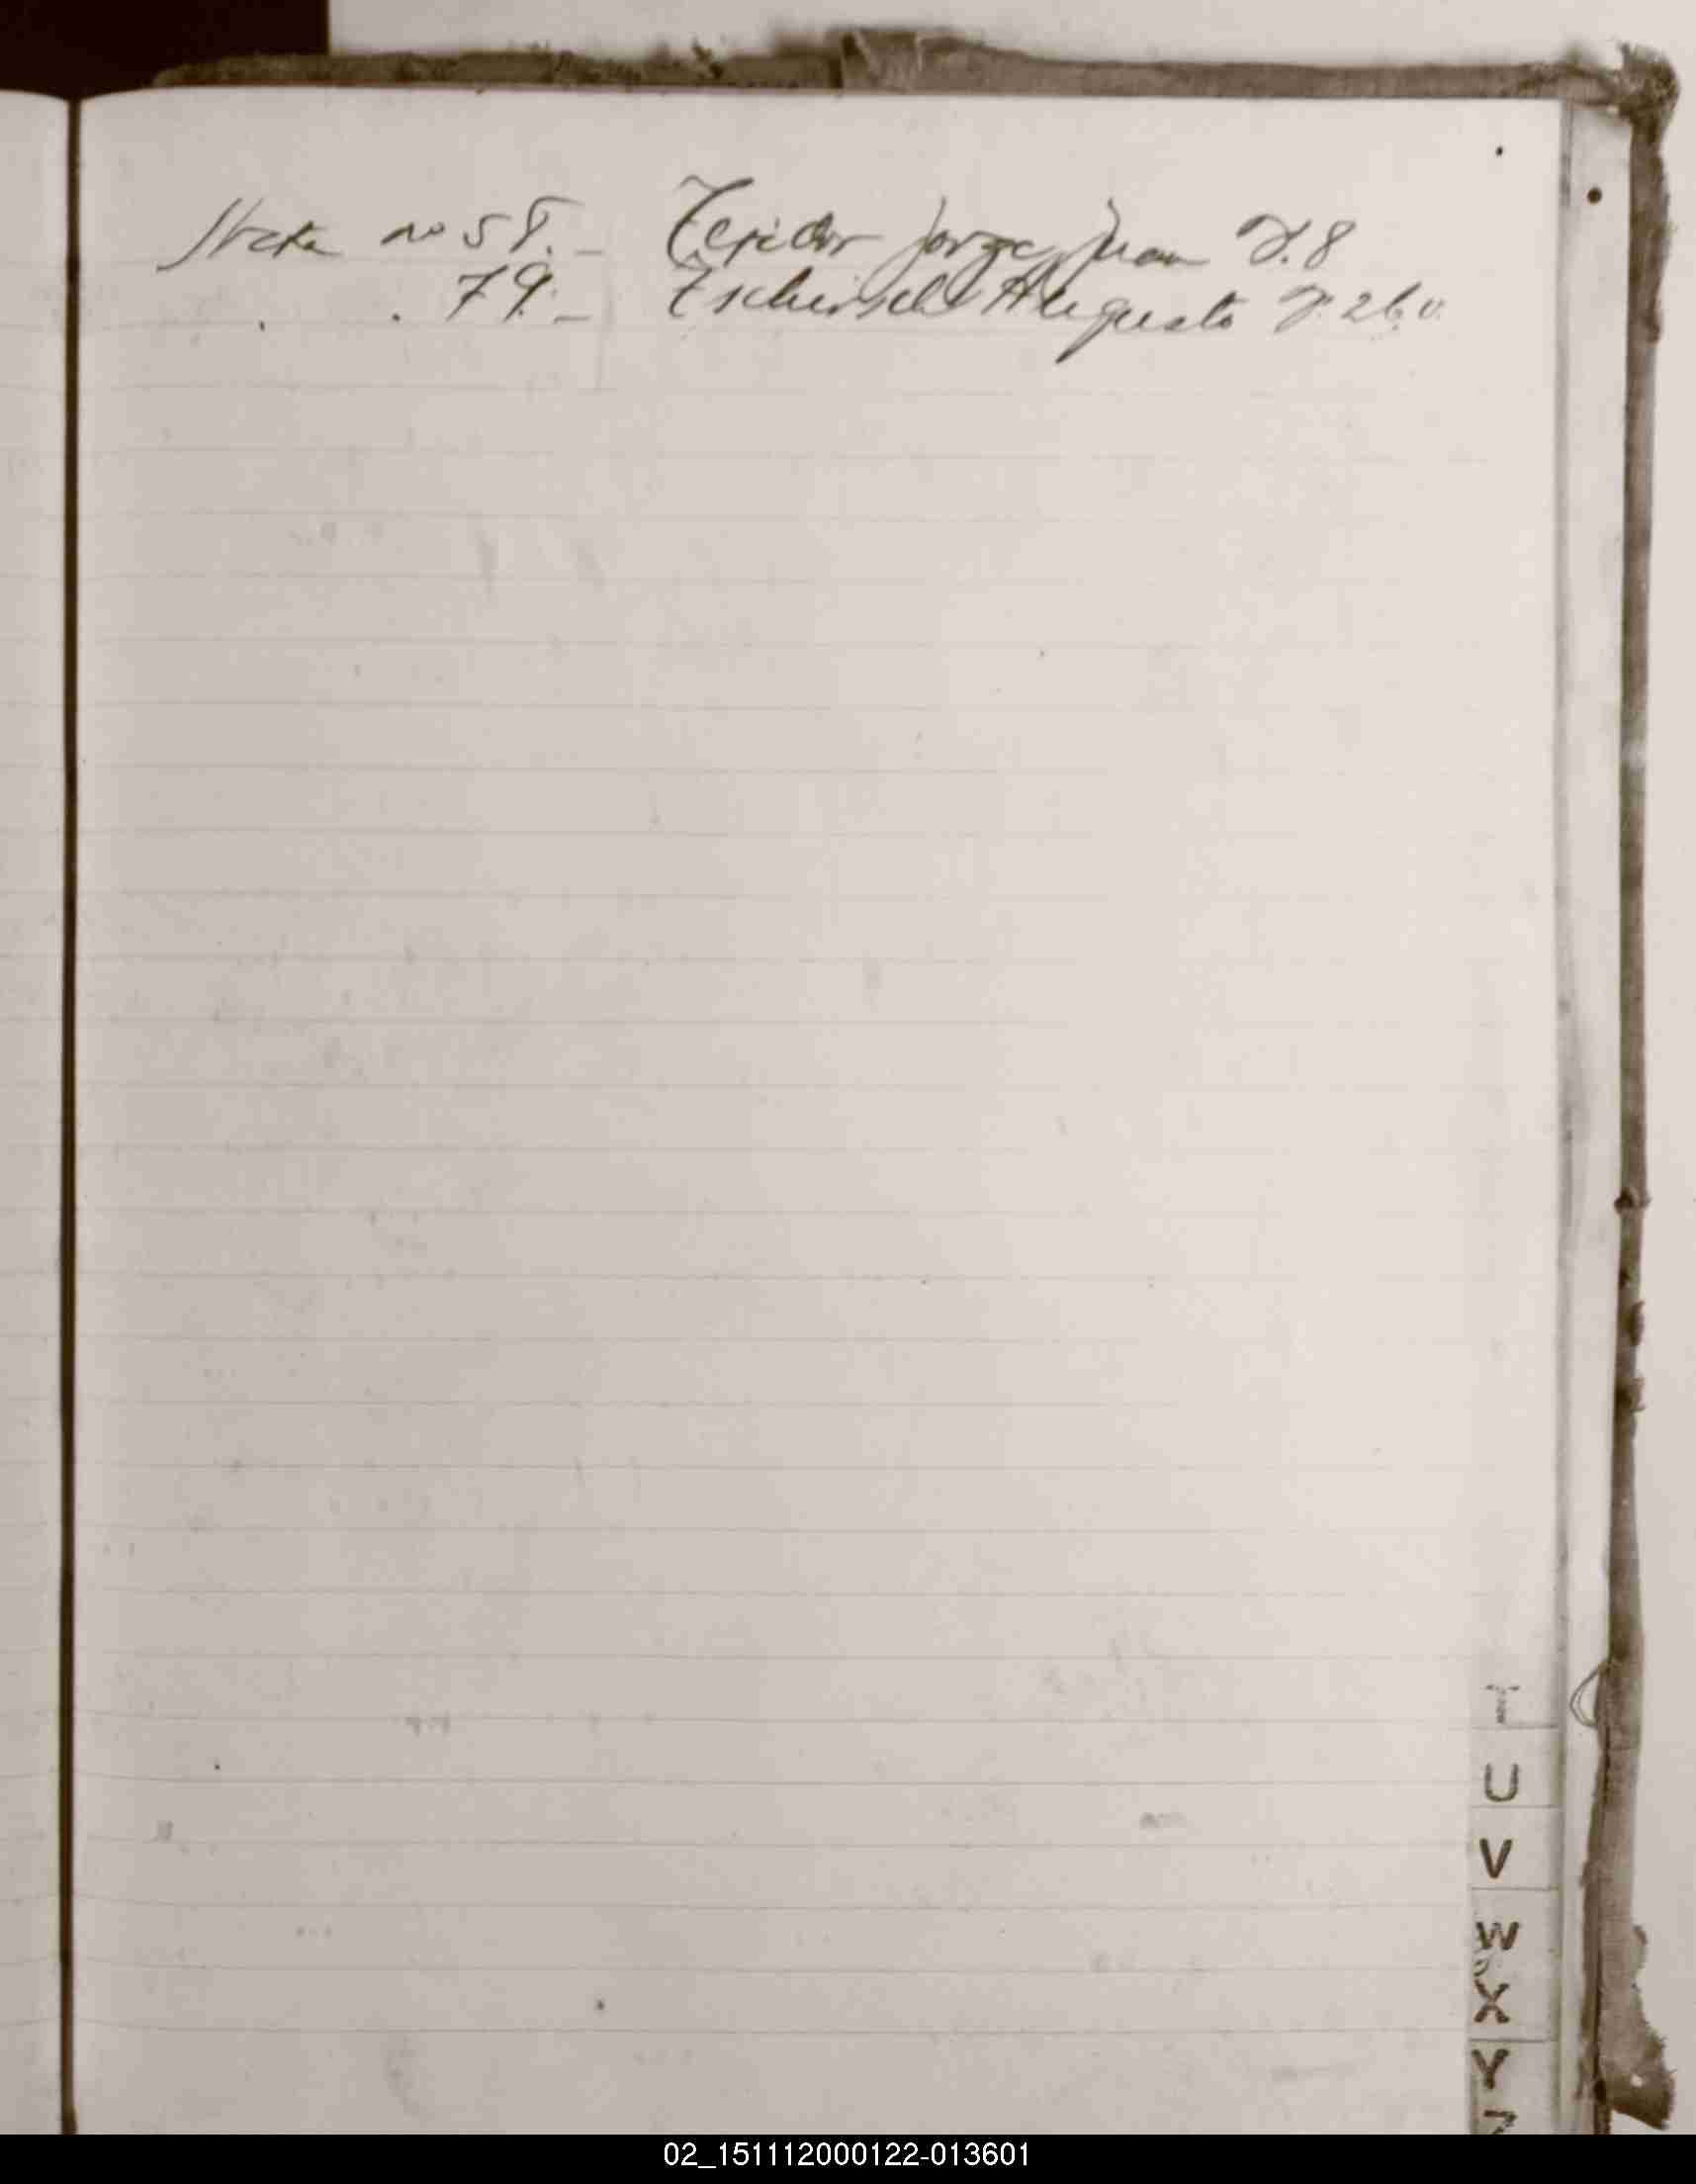 Acta no 58.- Texidor Jorge Juan F. 8
. . 79.- Tschirsch Augusto F. 26 v.
T
U
V
W
X
Y
Z
02_151112000122-013601